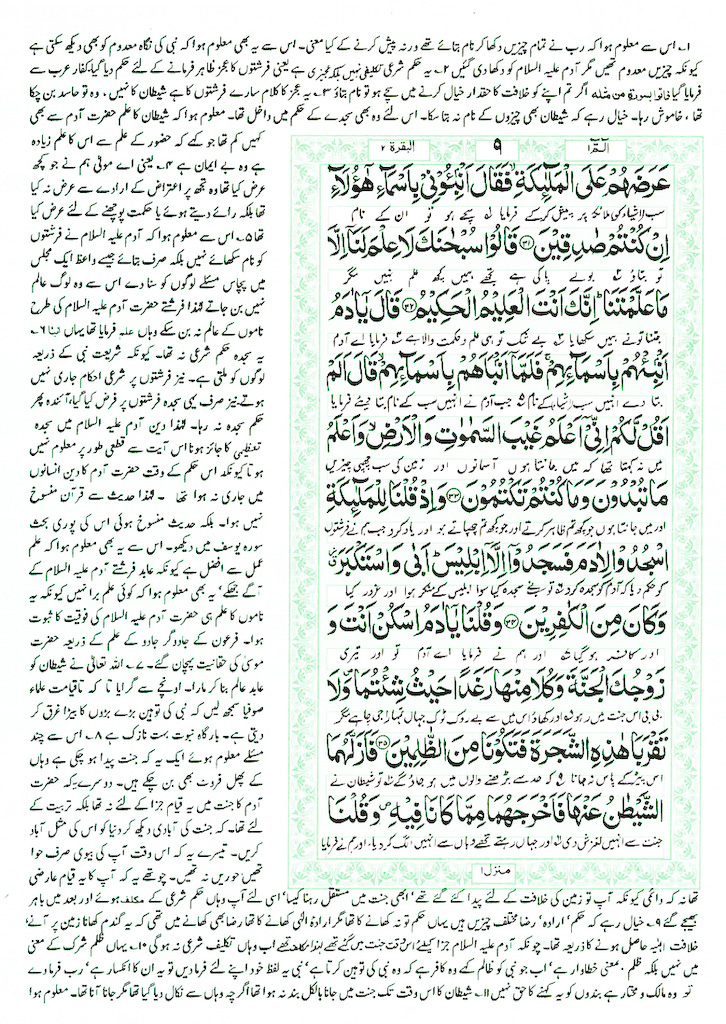 ۱۔ اس سے معلوم ہوا کہ رب نے تمام چیزیں دکھا کر نام بتائے تھے ورنہ پیش کرنے کے کیا معنی۔ اس سے یہ بھی معلوم ہوا کہ نبی کی نگاہ معدوم کو بھی دیکھ سکتی ہے
کیونکہ چیزیں معدوم تھیں مگر آدم علیہ السلام کو دکھا دی گئیں ۲۔ یہ حکم شرعی تکلیفی نہیں بلکہ تعجیزی ہے یعنی فرشتوں کا عجز ظاہر فرمانے کے لئے حکم دیا گیا، کفار عرب سے
فرمایا گیا فاتوا بسورة من مثله اگر تم اپنے کو خلافت کا حقدار خیال کرنے میں سچے ہو تو نام بتاؤ ۳۔ یہ عجز کا کلام سارے فرشتوں کا ہے شیطان کا نہیں، وہ تو حاسد بن چکا
تھا، خاموش رہا۔ خیال رہے کہ شیطان بھی چیزوں کے نام نہ بتا سکا۔ اس لئے وہ بھی سجدے کے حکم میں داخل تھا۔ معلوم ہوا کہ شیطان کا علم حضرت آدم سے بھی
کہیں کم تھا جو کہے کہ حضور کے علم سے اس کا علم زیادہ
ہے وہ بے ایمان ہے ۴۔ یعنی اے مولیٰ ہم نے جو کچھ
عرض کیا تھا وہ تجھ پر اعتراض کے ارادے سے عرض نہ کیا
تھا بلکہ رائے دیتے ہوئے یا حکمت پوچھنے کے لئے عرض کیا
تھا ۵۔ اس سے معلوم ہوا کہ آدم علیہ السلام نے فرشتوں
کو نام سکھائے نہیں بلکہ صرف بتائے جیسے واعظ ایک مجلس
میں پچاس مسئلے لوگوں کو سنا دے اس سے وہ لوگ عالم
نہیں بن جاتے لہٰذا فرشتے حضرت آدم علیہ السلام کی طرح
ناموں کے عالم نہ بن سکے وہاں علم فرمایا تھا یہاں انبا ۶۔
یہ سجدہ حکم شرعی نہ تھا۔ کیونکہ شریعت نبی کے ذریعہ
لوگوں کو ملتی ہے۔ نیز فرشتوں پر شرعی احکام جاری نہیں
ہوتے، نیز صرف یہی سجدہ فرشتوں پر فرض کیا گیا، آئندہ پھر
حکم سجدہ نہ رہا۔ لہٰذا دین آدم علیہ السلام میں سجدہ
تعظیمی کا جائز ہونا اس آیت سے قطعی طور پر معلوم نہیں
ہوتا کیونکہ اس حکم کے وقت حضرت آدم کا دین انسانوں
میں جاری نہ ہوا تھا۔ لہٰذا حدیث سے قرآن منسوخ
نہیں ہوا۔ بلکہ حدیث منسوخ ہوئی اس کی پوری بحث
سورہ یوسف میں دیکھو۔ اس سے یہ بھی معلوم ہوا کہ علم
عمل سے افضل ہے کیونکہ عابد فرشتے آدم علیہ السلام کے
آگے جھکے، یہ بھی معلوم ہوا کہ کوئی علم برا نہیں کیونکہ یہ
ناموں کا علم ہی حضرت آدم علیہ السلام کی فوقیت کا ثبوت
ہوا۔ فرعون کے جادوگر جادو کے علم کے ذریعہ حضرت
موسیٰ کی حقانیت پہچان گئے۔ ۷۔ اللہ تعالیٰ نے شیطان کو
عابد عالم بنا کر مارا۔ اونچے سے گرایا تا کہ تاقیامت علماء
صوفیا سمجھ لیں کہ نبی کی توہین بڑے بڑوں کا بیڑا غرق کر
دیتی ہے۔ بارگاہ نبوت بہت نازک ہے ۸۔ اس سے چند
مسئلے معلوم ہوئے ایک یہ کہ جنت پیدا ہو چکی ہے وہاں
کے پھل فروٹ بھی بن چکے ہیں۔ دوسرے یہ کہ حضرت
آدم کا جنت میں یہ قیام جزا کے لئے نہ تھا بلکہ تربیت کے
لئے تھا۔ کہ جنت کی آبادی دیکھ کر دنیا کو اس کی مثل آباد
کریں۔ تیسرے یہ کہ اس وقت آپ کی بیوی صرف حوا
تھیں حوریں نہ تھیں۔ چوتھے یہ کہ آپ کا یہ قیام عارضی
البقرة ۲
۹
الٓمٓ ۱
عَرَضَهُمْ عَلَى الْمَلٰٓىِٕكَةِ فَقَالَ اَنْۢبِـُٔوْنِیْ بِاَسْمَآءِ هٰۤؤُلَآءِ
سب اشیاء کو ملائکہ پر پیش کر کے فرمایا سچے ہو تو ان کے نام
اِنْ كُنْتُمْ صٰدِقِیْنَ ۝۳۱ قَالُوْا سُبْحٰنَكَ لَا عِلْمَ لَنَاۤ اِلَّا
تو بتاؤ بولے پاکی ہے تجھے ہمیں کچھ علم نہیں مگر
مَا عَلَّمْتَنَا ؕ اِنَّكَ اَنْتَ الْعَلِیْمُ الْحَكِیْمُ ۝۳۲ قَالَ یٰۤاٰدَمُ
جتنا تو نے ہمیں سکھایا بے شک تو ہی علم و حکمت والا ہے فرمایا اے آدم
اَنْۢبِئْهُمْ بِاَسْمَآىِٕهِمْ ۚ فَلَمَّاۤ اَنْۢبَاَهُمْ بِاَسْمَآىِٕهِمْ ۙ قَالَ اَلَمْ
بتا دے انہیں سب اشیاء کے نام جب آدم نے انہیں سب کے نام بتا دیئے فرمایا
اَقُلْ لَّكُمْ اِنِّیْۤ اَعْلَمُ غَیْبَ السَّمٰوٰتِ وَ الْاَرْضِ ۙ وَ اَعْلَمُ
میں نہ کہتا تھا کہ میں جانتا ہوں آسمانوں اور زمین کی سب چھپی چیزیں
مَا تُبْدُوْنَ وَ مَا كُنْتُمْ تَكْتُمُوْنَ ۝۳۳ وَ اِذْ قُلْنَا لِلْمَلٰٓىِٕكَةِ
اور میں جانتا ہوں جو کچھ تم ظاہر کرتے اور جو کچھ تم چھپاتے ہو اور یاد کرو جب ہم نے فرشتوں
اسْجُدُوْا لِاٰدَمَ فَسَجَدُوْۤا اِلَّاۤ اِبْلِیْسَ ؕ اَبٰى وَ اسْتَكْبَرَ ۗ
کو حکم دیا کہ آدم کو سجدہ کرو تو سب نے سجدہ کیا سوا ابلیس کے منکر ہوا اور غرور کیا
وَ كَانَ مِنَ الْكٰفِرِیْنَ ۝۳۴ وَ قُلْنَا یٰۤاٰدَمُ اسْكُنْ اَنْتَ وَ
اور کافر ہو گیا اور ہم نے فرمایا اے آدم تو اور تیری
زَوْجُكَ الْجَنَّةَ وَ كُلَا مِنْهَا رَغَدًا حَیْثُ شِئْتُمَا ۪ وَ لَا
بی بی اس جنت میں رہو اور کھاؤ اس میں سے بے روک ٹوک جہاں تمہارا جی چاہے مگر
تَقْرَبَا هٰذِهِ الشَّجَرَةَ فَتَكُوْنَا مِنَ الظّٰلِمِیْنَ ۝۳۵ فَاَزَلَّهُمَا
اس پیڑ کے پاس نہ جانا کہ حد سے بڑھنے والوں میں ہو جاؤ گے تو شیطان نے
الشَّیْطٰنُ عَنْهَا فَاَخْرَجَهُمَا مِمَّا كَانَا فِیْهِ ۪ وَ قُلْنَا
جنت سے انہیں لغزش دی اور جہاں رہتے تھے وہاں سے انہیں الگ کر دیا اور ہم نے فرمایا
منزل ۱
تھا نہ کہ دائمی کیونکہ آپ تو زمین کی خلافت کے لئے پیدا کئے گئے تھے، ابھی جنت میں مستقل رہنا کیسا، اسی لئے آپ وہاں حکم شرعی کے مکلف ہوئے اور بعد میں باہر
بھیجے گئے ۹۔ خیال رہے کہ حکم، ارادہ، رضا مختلف چیزیں ہیں یہاں حکم تو نہ کھانے کا تھا مگر ارادۂ الٰہی کھانے کا تھا رضا بھی کھانے میں تھی کہ یہ گندم کھانا زمین پر آنے،
خلافت الٰہیہ حاصل ہونے کا ذریعہ تھا۔ چونکہ آدم علیہ السلام جزا کیلئے اس وقت جنت میں نہ گئے تھے لہٰذا مکلف تھے اب وہاں تکلیف شرعی نہ ہو گی ۱۰۔ یہاں ظلم شرک کے معنی
میں نہیں بلکہ ظلم۔ بمعنی خطا وار ہے، اب جو نبی کو ظالم کہے وہ کافر ہے کہ وہ نبی کی توہین کرتا ہے، نبی یہ لفظ خود اپنے لئے فرمادیں تو یہ ان کا انکسار ہے، رب فرما دے
تو وہ مالک و مختار ہے بندوں کو یہ کہنے کا حق نہیں ۱۱۔ شیطان کا اس وقت تک جنت میں جانا بالکل بند نہ ہوا تھا اگرچہ وہاں سے نکال دیا گیا تھا مگر جانا آنا تھا۔ معلوم ہوا